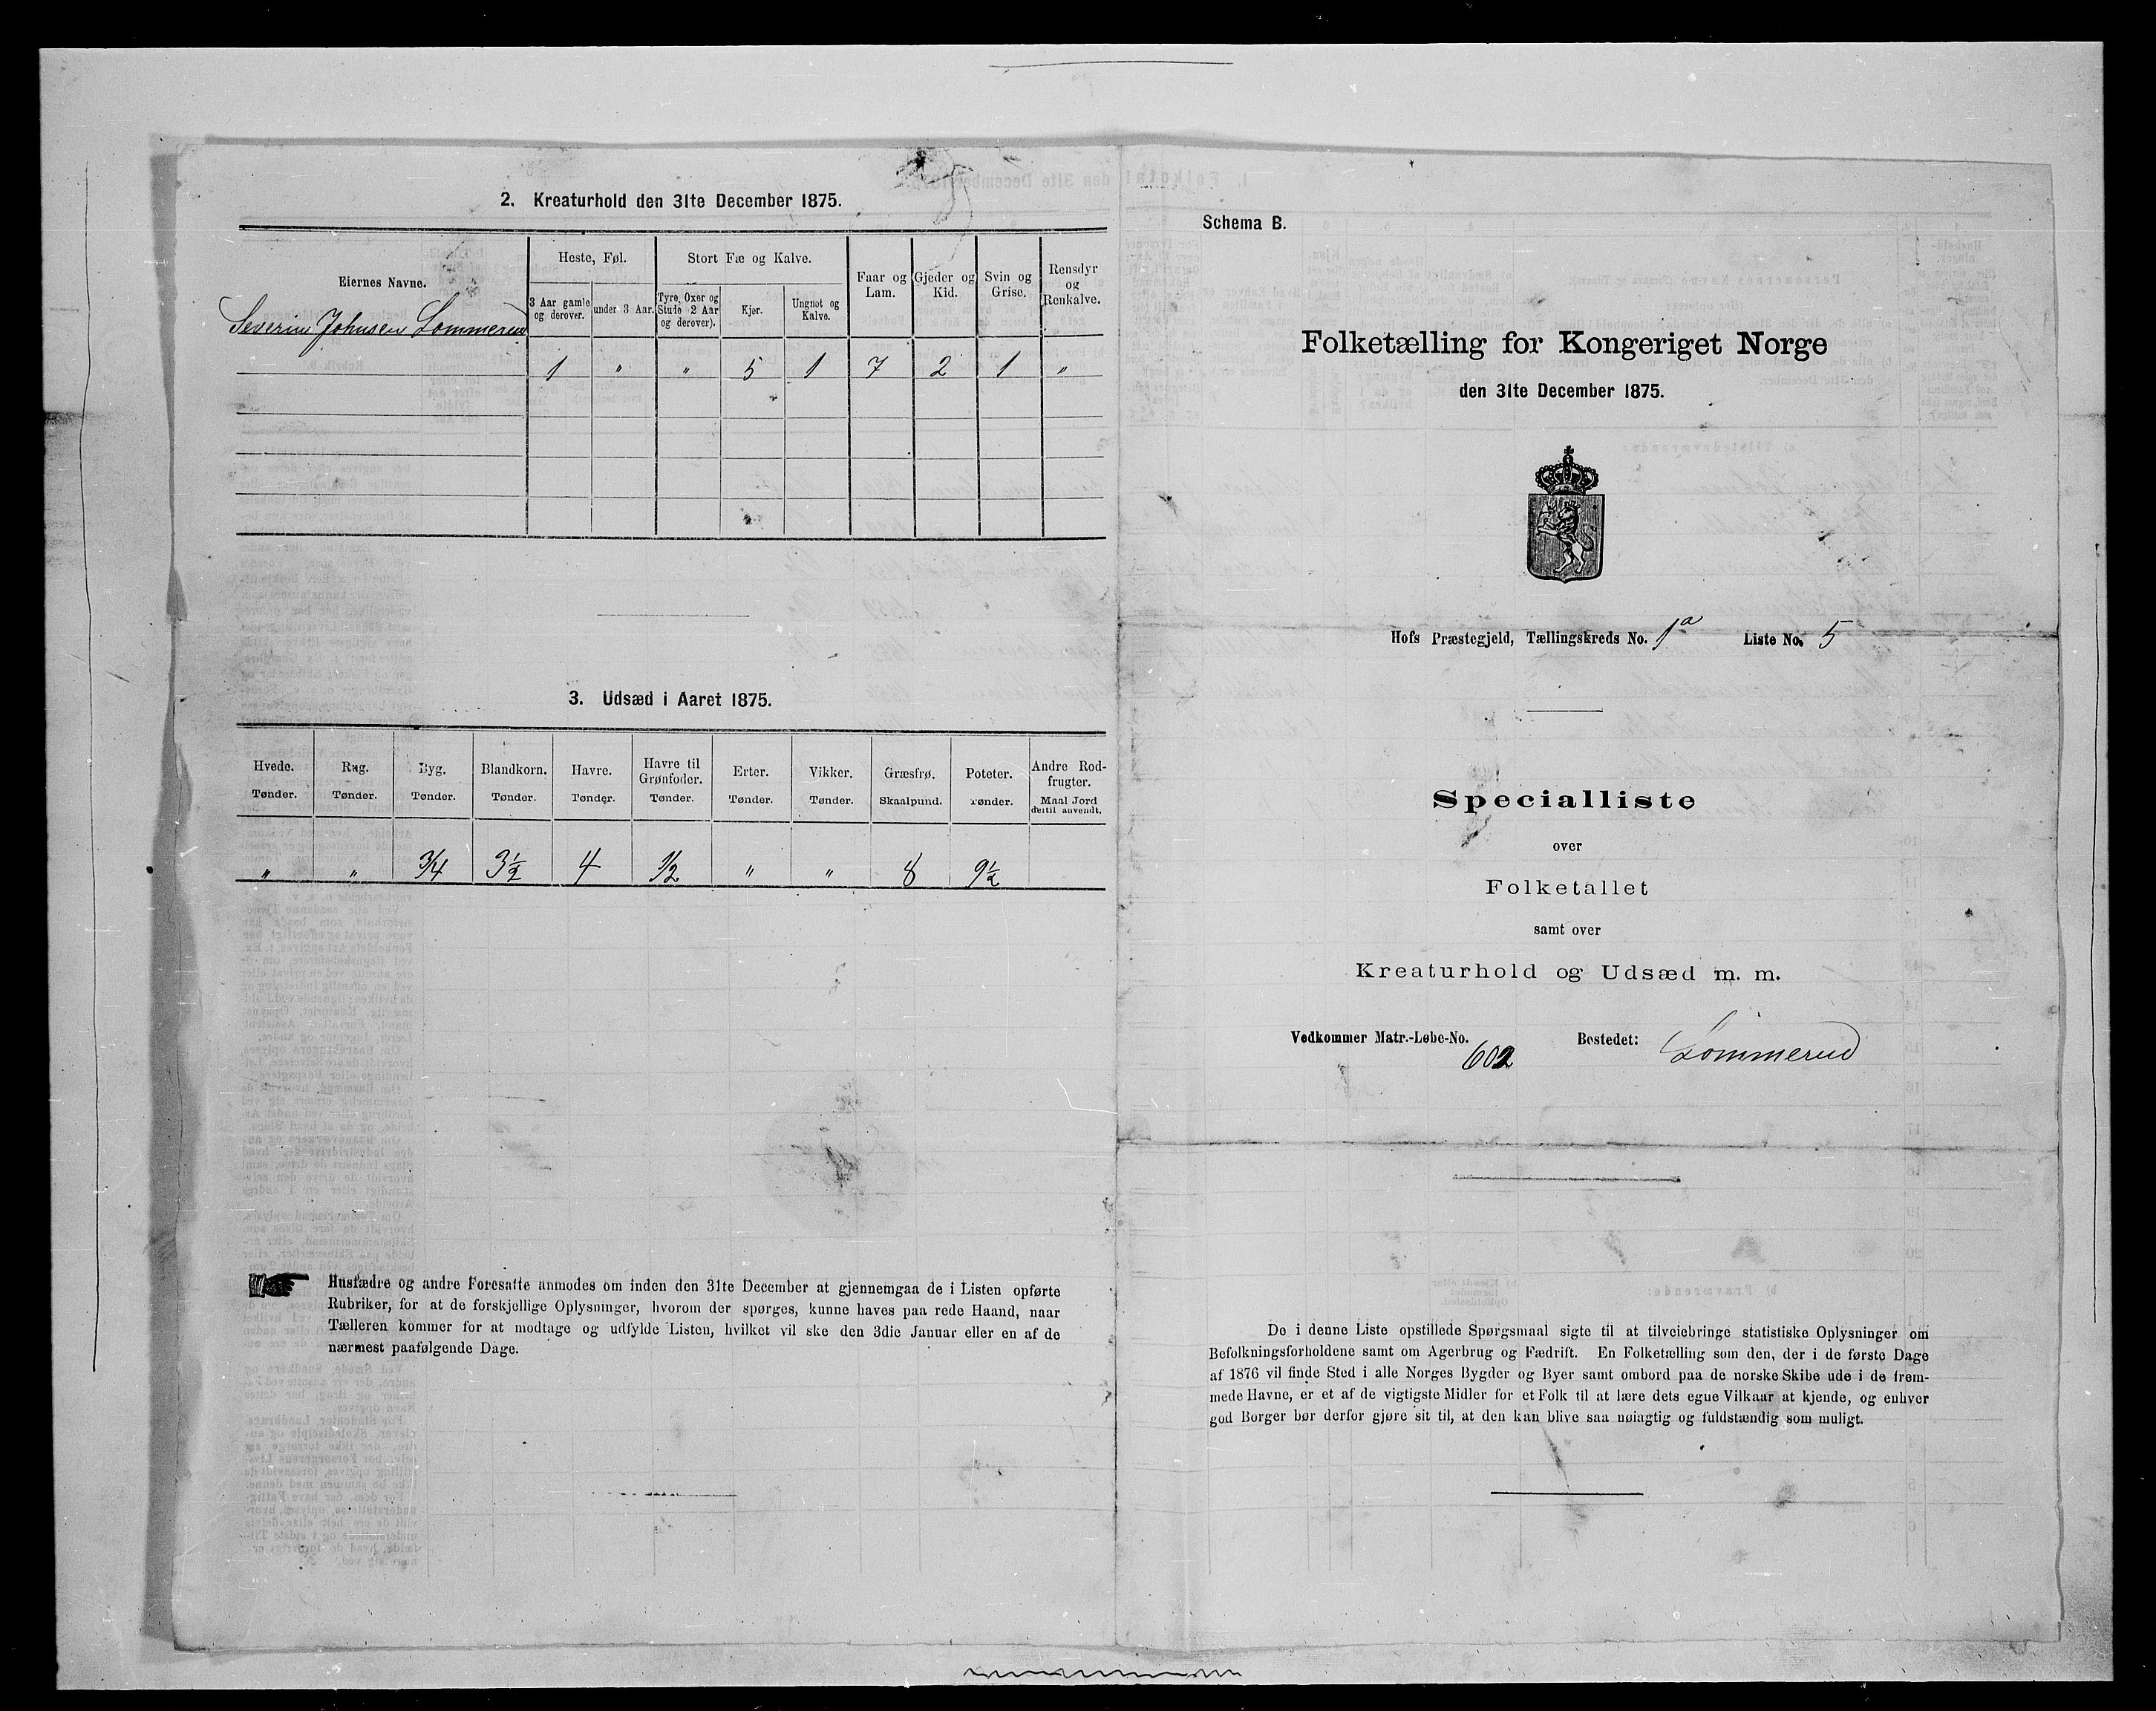 2. Kreaturhold den 31te December 1875.
Eiernes Navne.
Heste, Føl.
Stort Fæ og Kalve.
Faar og Lam.
Gjeder og Kid.
Svin og Grise.
Rensdyr og Renkalve.
3 Aar gamle og derover.
under 3 Aar.
Tyre, Oxer og Stude (2 Aar og derover).
Kjør.
Ungnøt og Kalve.
Severin Johnsen Lommerud
1 " " 5 1 7 2 1 "
3. Udsæd i Aaret 1875.
Hvede. Rug. Byg. Blandkorn. Havre. Havre til Grønfoder. Erter. Vikker. Græsfrø. Poteter. Andre Rodfrugter.
Tønder. Tønder. Tønder. Tønder. Tønder. Tønder. Tønder. Tønder. Skaalpund. Tønder. Maal Jord dertil anvendt.
" " 3/4 3 1/2 4 1/2 " " 8 9 1/2
Husfædre og andre Foresatte anmodes om inden den 31te December at gjennemgaa de i Listen opførte
Rubriker, for at de forskjellige Oplysninger, hvorom der spørges, kunne haves paa rede Haand, naar
Tælleren kommer for at modtage og udfylde Listen, hvilket vil ske den 3die Januar eller en af de
nærmest paafølgende Dage.
Schema B.
Folketælling for Kongeriget Norge
den 31te December 1875.
Hofs Præstegjeld, Tællingskreds No. 1a Liste No. 5
Specialliste
over
Folketallet
samt over
Kreaturhold og Udsæd m. m.
Vedkommer Matr.-Løbe-No. 602 Bostedet: Lommerud
De i denne Liste opstillede Spørgsmaal sigte til at tilveiebringe statistiske Oplysninger om
Befolkningsforholdene samt om Agerbrug og Fædrift. En Folketælling som den, der i de første Dage
af 1876 vil finde Sted i alle Norges Bygder og Byer samt ombord paa de norske Skibe ude i de frem-
mede Havne, er et af de vigtigste Midler for et Folk til at lære dets egne Vilkaar at kjende, og enhver
god Borger bør derfor gjøre sit til, at den kan blive saa nøiagtig og fuldstændig som muligt.